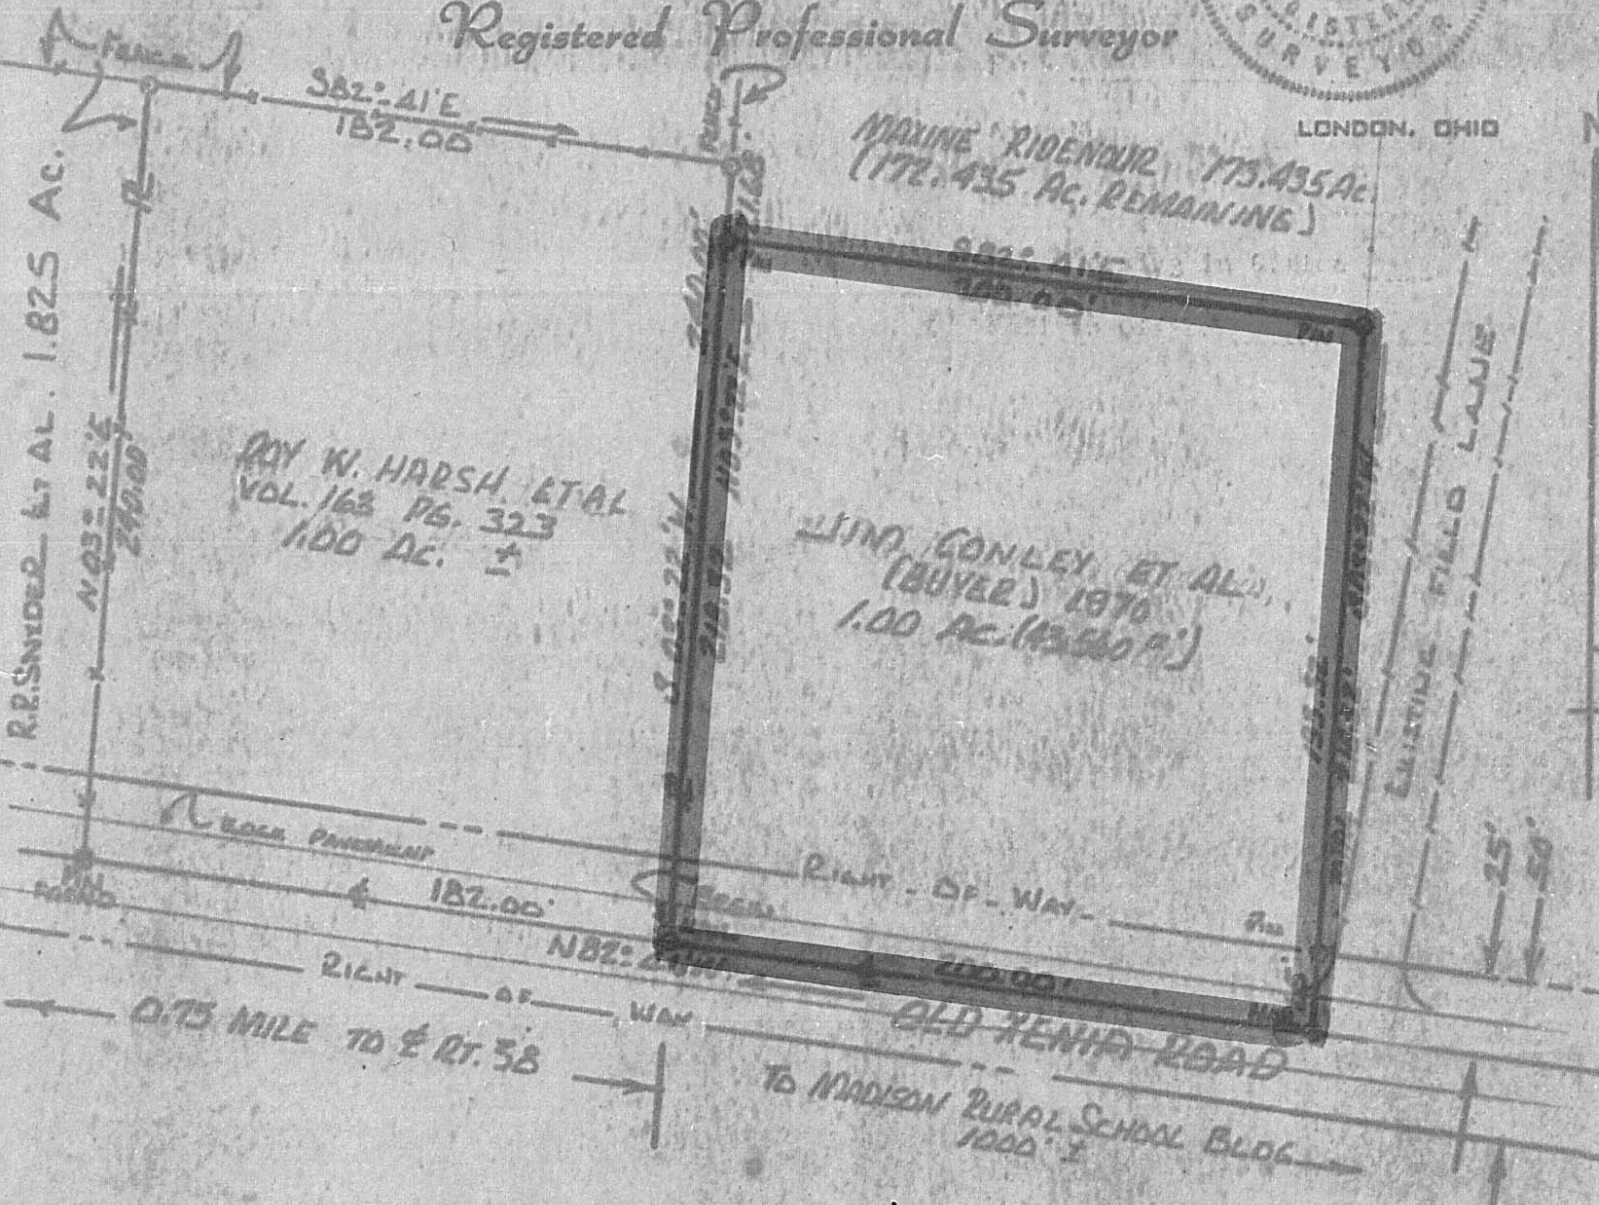 Registered Professional Surveyor
SURVEYOR
LONDON, OHIO
FENCE
S82°-41'E
182.00
FENCE
21.68'
MAXINE RIDENOUR 173.435 Ac.
(172.435 Ac. REMAINING)
S82°-41'E
200.00'
PIN
R.R. SNYDER ET AL. 1.825 Ac.
N03°-22'E
240.00'
ROY W. HARSH ET AL
VOL. 163 PG. 323
1.00 Ac. ±
240.00'
S 03°-22'W
218.32
N03°-22'E
JIM CONLEY ET AL.
(BUYER) 1970
1.00 AC. (43,560 ')
193.32'
218.32'
EXISTING FIELD LANE
25'
50'
ROCK PAVEMENT
PIN
FOUND
182.00'
BEGIN
RIGHT-OF-WAY
PIN
N82°-41'W
200.00'
RIGHT OF WAY
OLD XENIA ROAD
0.75 MILE TO ℄ RT. 38
TO MADISON RURAL SCHOOL BLDG.
1000' ±